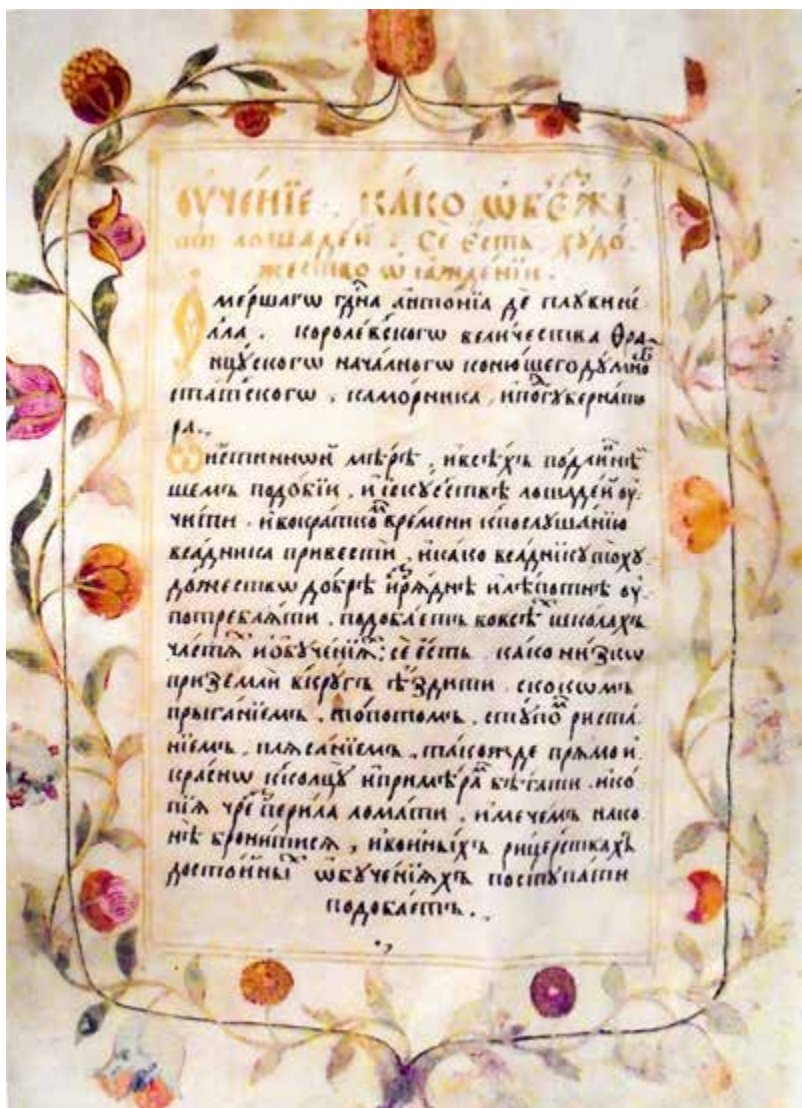 ОУЧЕ́НЇЕ . КА́КО Ѡ̑Б꙾Є҆ЗЖА́
ти лошаде́й . Се́ є҆́сть худо́
жество ѡ҆ ꙗ҆жде́нїи .
Ѹ҆ме́ршагѡ гдⷭ҇на а҆нто́нїа де́ плꙋвине́
лла . короле́вскогѡ вели́чества Ѳра
нцꙋ́скогѡ нача́лногѡ коню́шего дꙋ́мно
ста́тскогѡ , камо́рника , и҆ по́гꙋберна́то
ра .,
Ѡ҆ и҆́стинной мѣ́рѣ , и҆ всѣ́хъ по́длиннѣ
шемъ подо́бїи , и҆ и҆скꙋ́сствѣ лошаде́й оу҆
чи́ти . и҆ вокра́тко вре́мени к послꙋша́нїю
вса́дника привести́ , и҆ ка́ко вса́дникꙋ тоху
до́жествѡ до́брѣ и҆зрѧ́днѣ и҆ лѣ́потнѣ оу҆
потреблѧ́ти . подоба́етъ во всѣⷯ шко́лахъ
ча́стїѧ и҆ ѡ҆бꙋче́нїѧ ; се́ є҆́сть . ка́ко ни́зкѡ
при земли́ вкрꙋ́гъ ѣ҆́здити . ско́комъ
пры́ганїемъ , то́потомъ , стꙋ́пью риста́
нїемъ , плѧса́нїемъ , та́кожде прѧ́мо и҆
кра́снѡ к колцꙋ̀ и҆ примѣ́ра бѣ́гати . и҆ ко
пїѧ̀ чре́з пери́ла лома́ти , и҆ мече́мъ на ко
нѣ̀ брони́тисѧ , и҆ во и҆ны́хъ ры́церскахъ
досто́йныⷯ ѡ҆бꙋче́нїѧхъ постꙋпа́ти
подоба́етъ . .